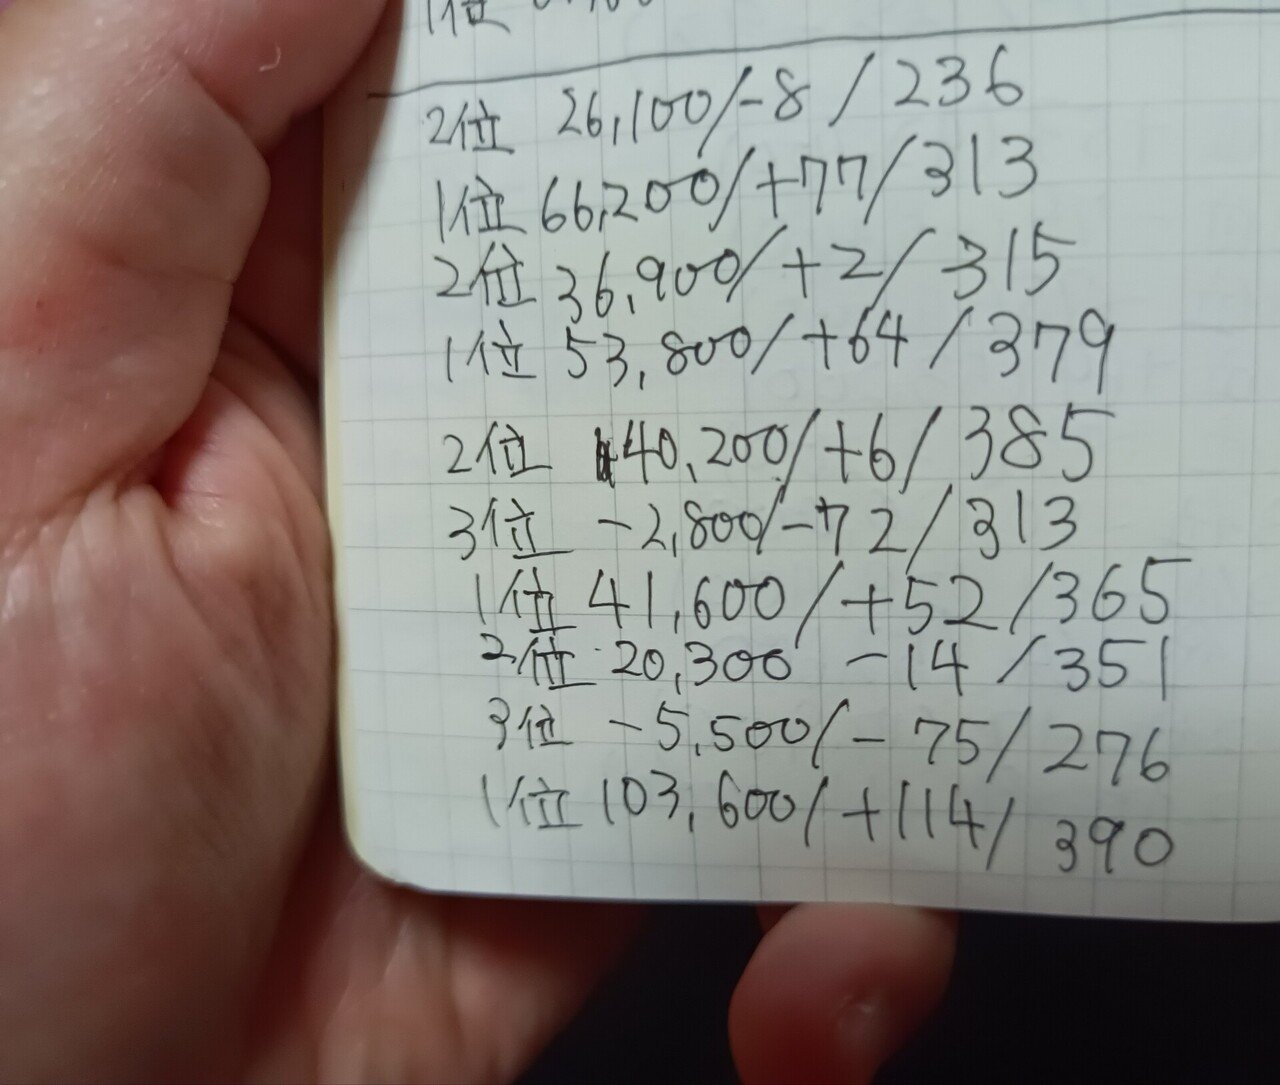 1位
2位 26,100/-8/236
1位 66,200/+77/313
2位 36,900/+2/315
1位 53,800/+64/379
2位 40,200/+6/385
3位 -2,800/-72/313
1位 41,600/+52/365
2位 20,300 -14/351
3位 -5,500/-75/276
1位 103,600/+114/390